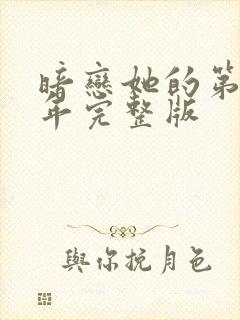 暗戀她的第
年完整版
與你挽月色